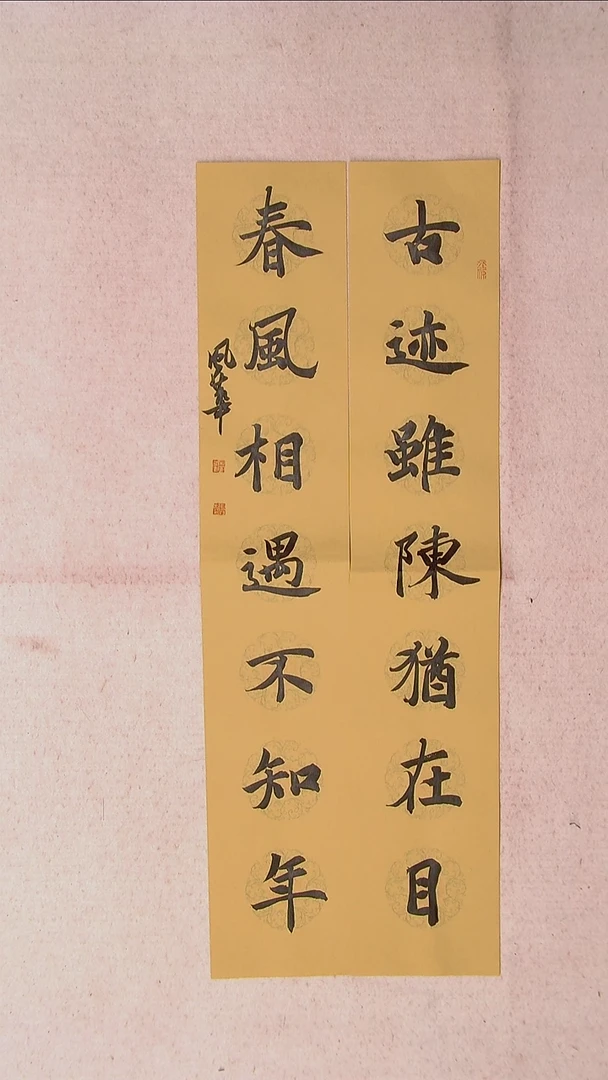 古迹雖陳猶在目
春風相遇不知年